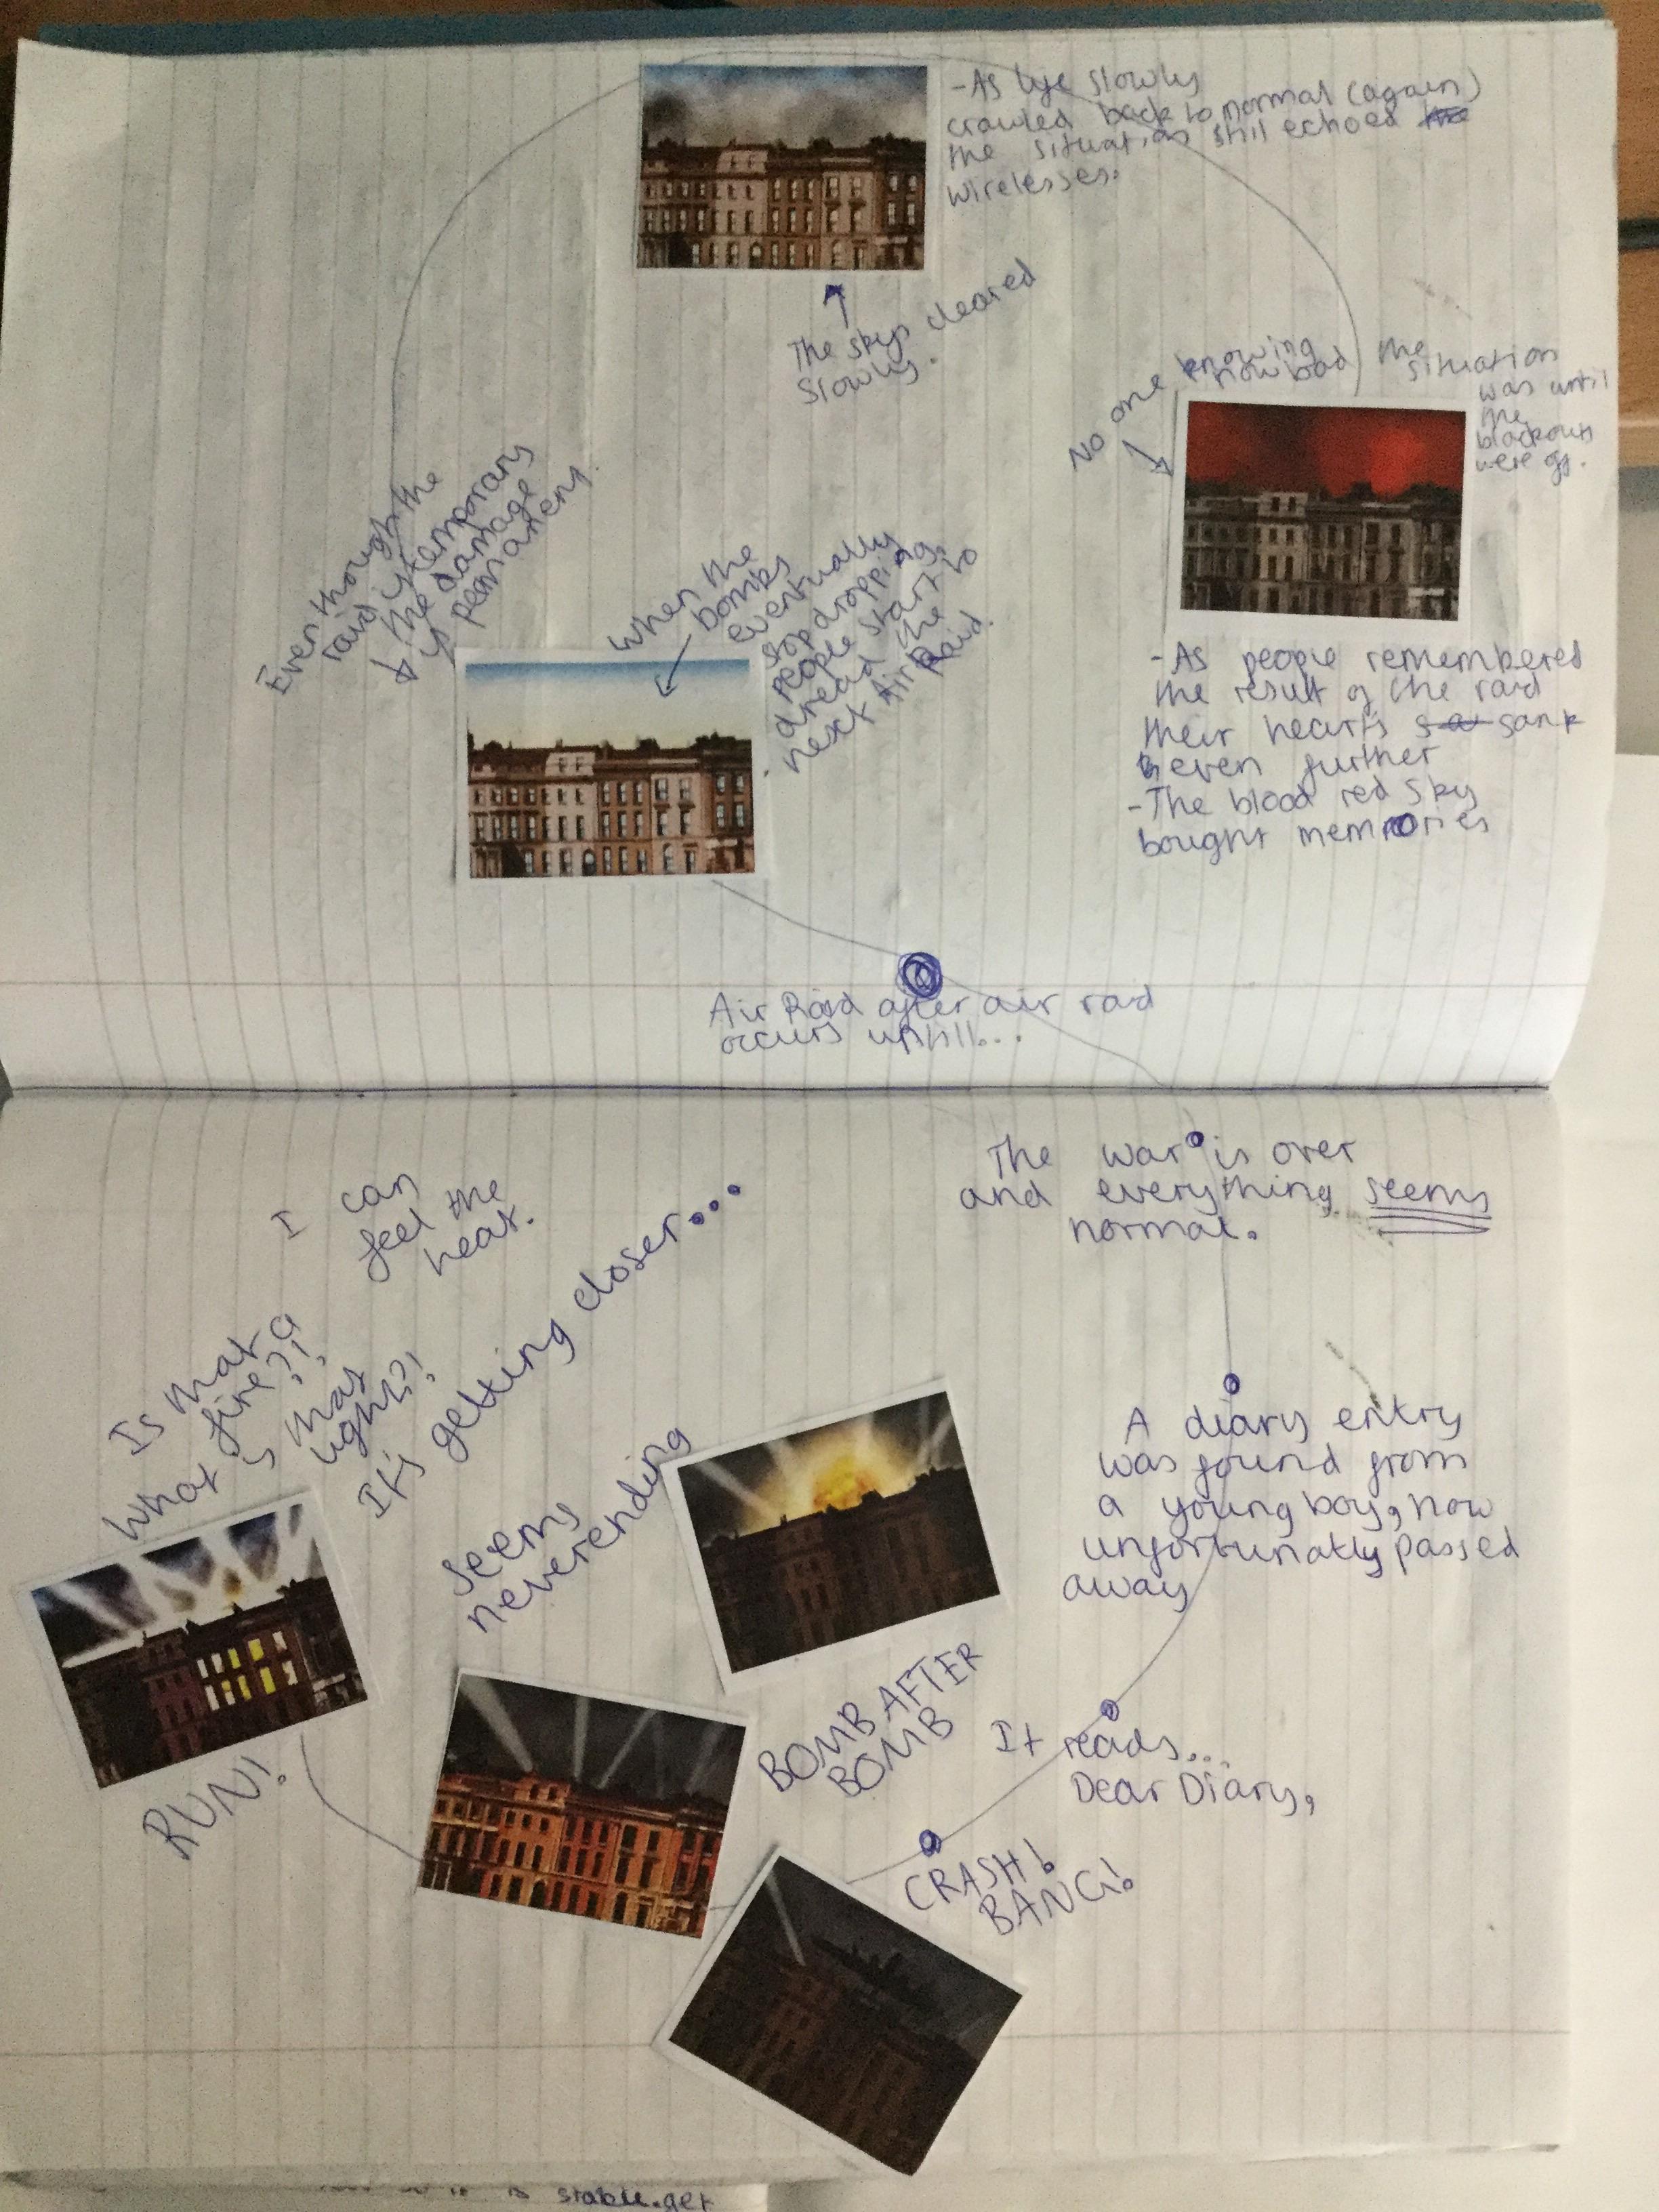 -As life slowly
crawled back to normal (again)
the situation still echoed the
wirelesses.
The skys cleared
slowly.
No one knowing
how bad the
situation
was until
the
blackouts
were off.
-As people remembered
the result of the raid
their hearts sa sank
even further
-The blood red sky
bought memories
Even though the
raid is temporary
the damage
is permanent.
When the
bombs
eventually
stop dropping,
people start to
dread the
next Air Raid.
Air Raid after air raid
occurs untill...
The war is over
and everything seems
normal.
A diary entry
was found from
a young boy, now
unfortunatly passed
away
It reads...
Dear Diary,
CRASH!
BANG!
BOMB AFTER
BOMB
Seems
neverending
It's getting closer....
I can
feel the
heat.
Is that a
fire?!
What is that
light?!
RUN!
stable.get